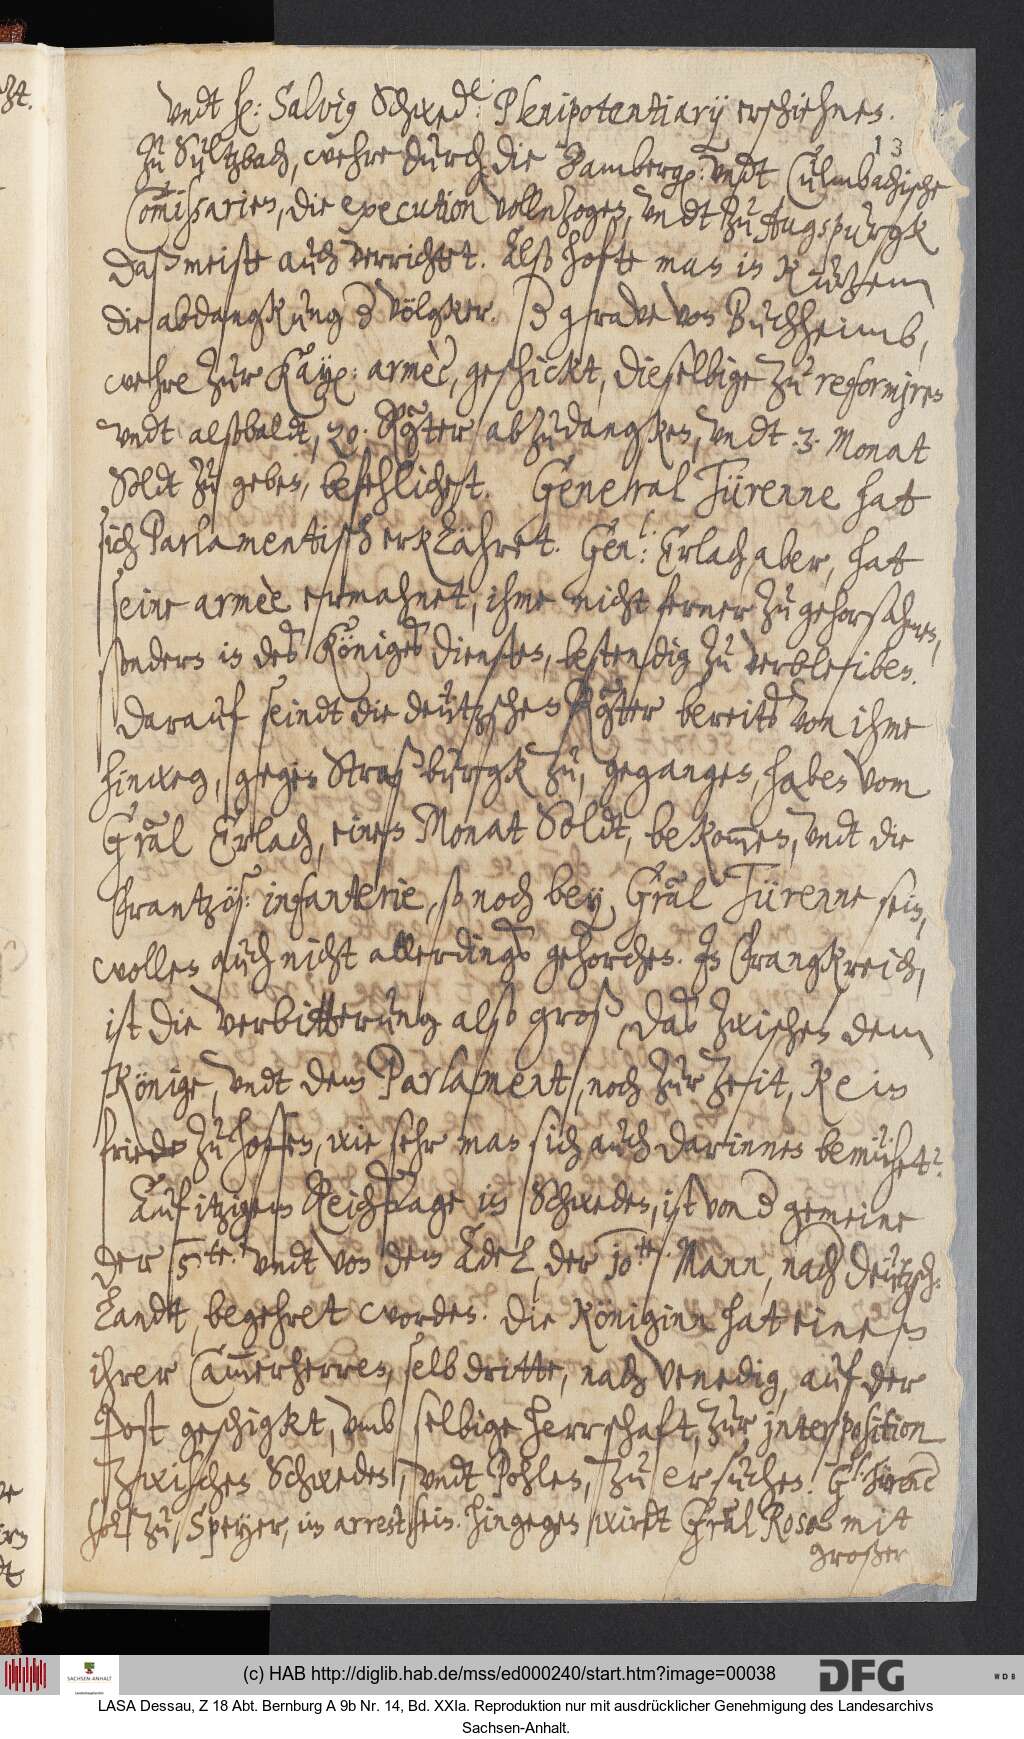 13
vndt h: Salvig Schwed: Plenipotentiarij erschiehnen.
Zu Sultzbach, wehre durch die Bamberg: vndt Culmbachische
Comissarien, die execution vollnzogen, vndt zu Augspurgk
daß meiste auch verrichtet. Alß hofte man in Kurtzem
die abdangkung d völgker. D grave von Buchheimb,
wehre zur Kay: armèe, geschickt, dieselbige zu reformiren
vndt alsobaldt, 20. Rgter abzudangken, vndt .3. Monat
Soldt zu geben, befehlichet. General Türenne hat
sich Parlamentisch erklähret. Gen: Erlach aber, hat
seine armèe ermahnet, ihme nicht ferner zu gehorsahmen,
sondern in des Königes diensten, bestendig zu verbleiben.
Darauf seindt die deützschen Rgter bereits von ihme
hinweg, gegen Straßburgk zu, gegangen, haben vom
Gräl Erlach, einen Monat Soldt, bekommen, vndt die
Frantzös: infanterie, so noch bey Gräl Türenne sein,
wollen auch nicht allerdings gehorchen. In Frangkreich,
ist die verbitterung also groß das zwischen dem
Könige, vndt dem Parlament, noch zur zeit, kein
friede zu hoffen, wie sehr man sich auch darinnen bemühet.
Auf itzigem Reichstage in Schweden, ist von d gemeine
der 5te. vndt von dem Adel, der 10te. Mann, nach Deützsch-
landt, begehret worden. Die Königinn hat einen
ihrer Cam̄erherren, selbdritte, nach Venedig, auf der
Post geschigkt, vmb selbige herrschaft, zur interposition
zwischen Schweden, vndt Pohlen, zu ersuchen. G: Türenne
soll zu Speyer, im arrest sein. Hingegen wirdt Gräl Rosa mit
großer
(c) HAB http://diglib.hab.de/mss/ed000240/start.htm?image=00038
HAB
SACHSEN-ANHALT
DFG
WDB
LASA Dessau, Z 18 Abt. Bernburg A 9b Nr. 14, Bd. XXIa. Reproduktion nur mit ausdrücklicher Genehmigung des Landesarchivs
Sachsen-Anhalt.